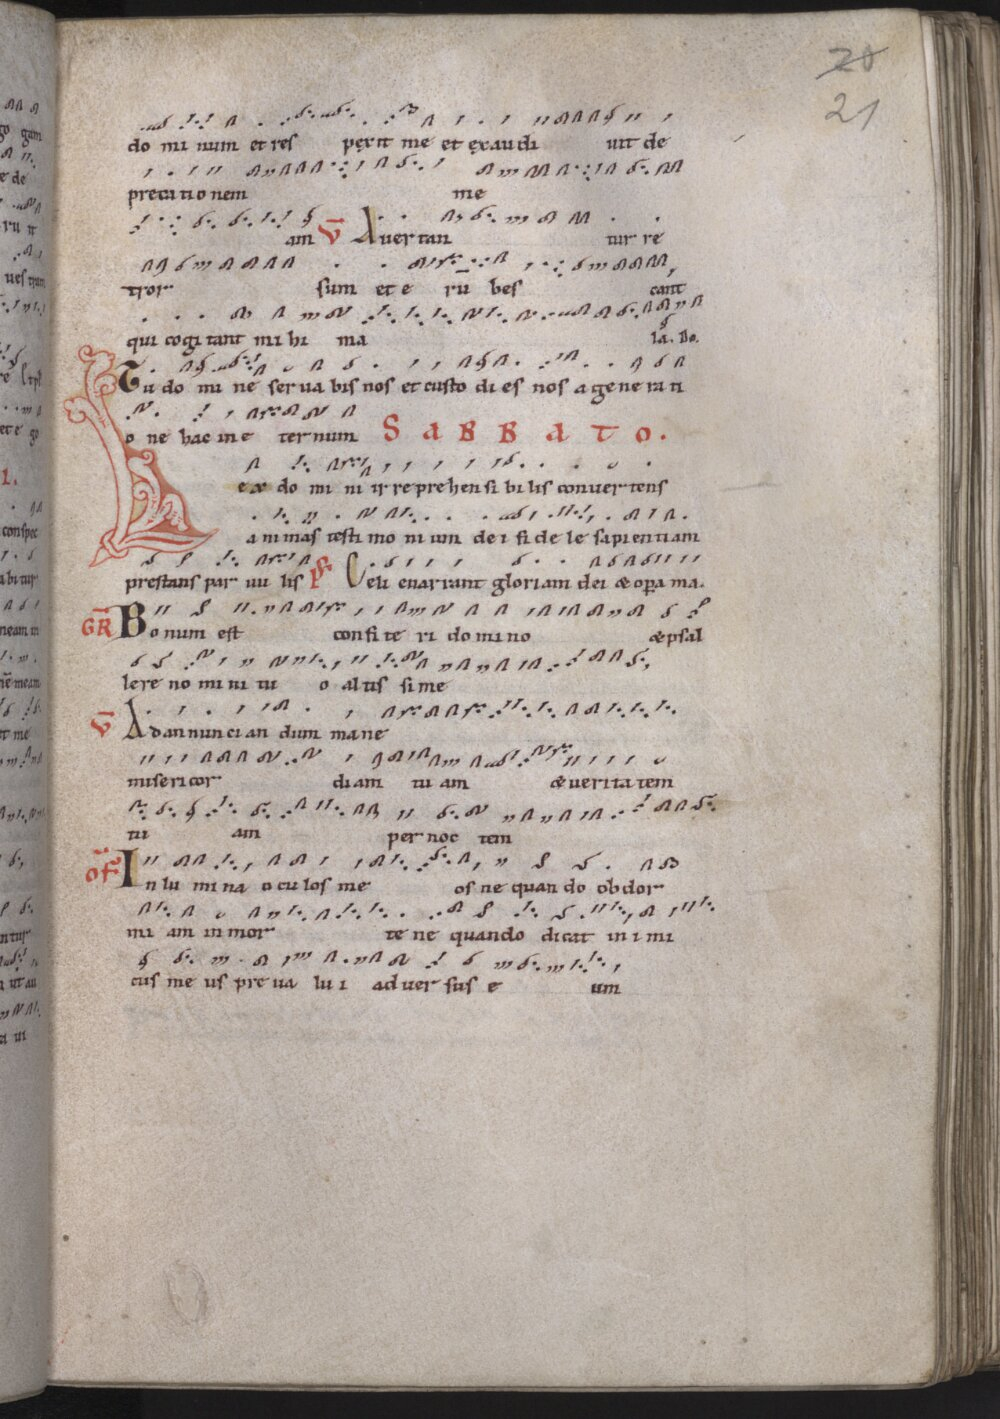 20
21
do mi num et res pexit me et exau di uit de
precationem me
am V Auertan tur re
tror sum et e ru bes cant
qui cogitant mihi ma la. Do.
Tu do mi ne ser ua bis nos et custo di es nos a gene ra ti
o ne hac in e ternum SABBATO.
Lex do mi ni irreprehensi bi lis convertens
animas testi mo nium dei fi de le sapientiam
prestans par uu lis ps Celi enarrant gloriam dei & opa ma.
GR Bonum est confite ri do mi no & psal
lere no mi ni tu o altissime
V Ad an nun ci an dum mane
misericor diam tu am & ueritatem
tu am per noc tem
OF In lu mi na oculos me os ne quan do ob dor
mi am in mor te ne quando dicat in i mi
cus me us pre ua lu i aduer sus e um